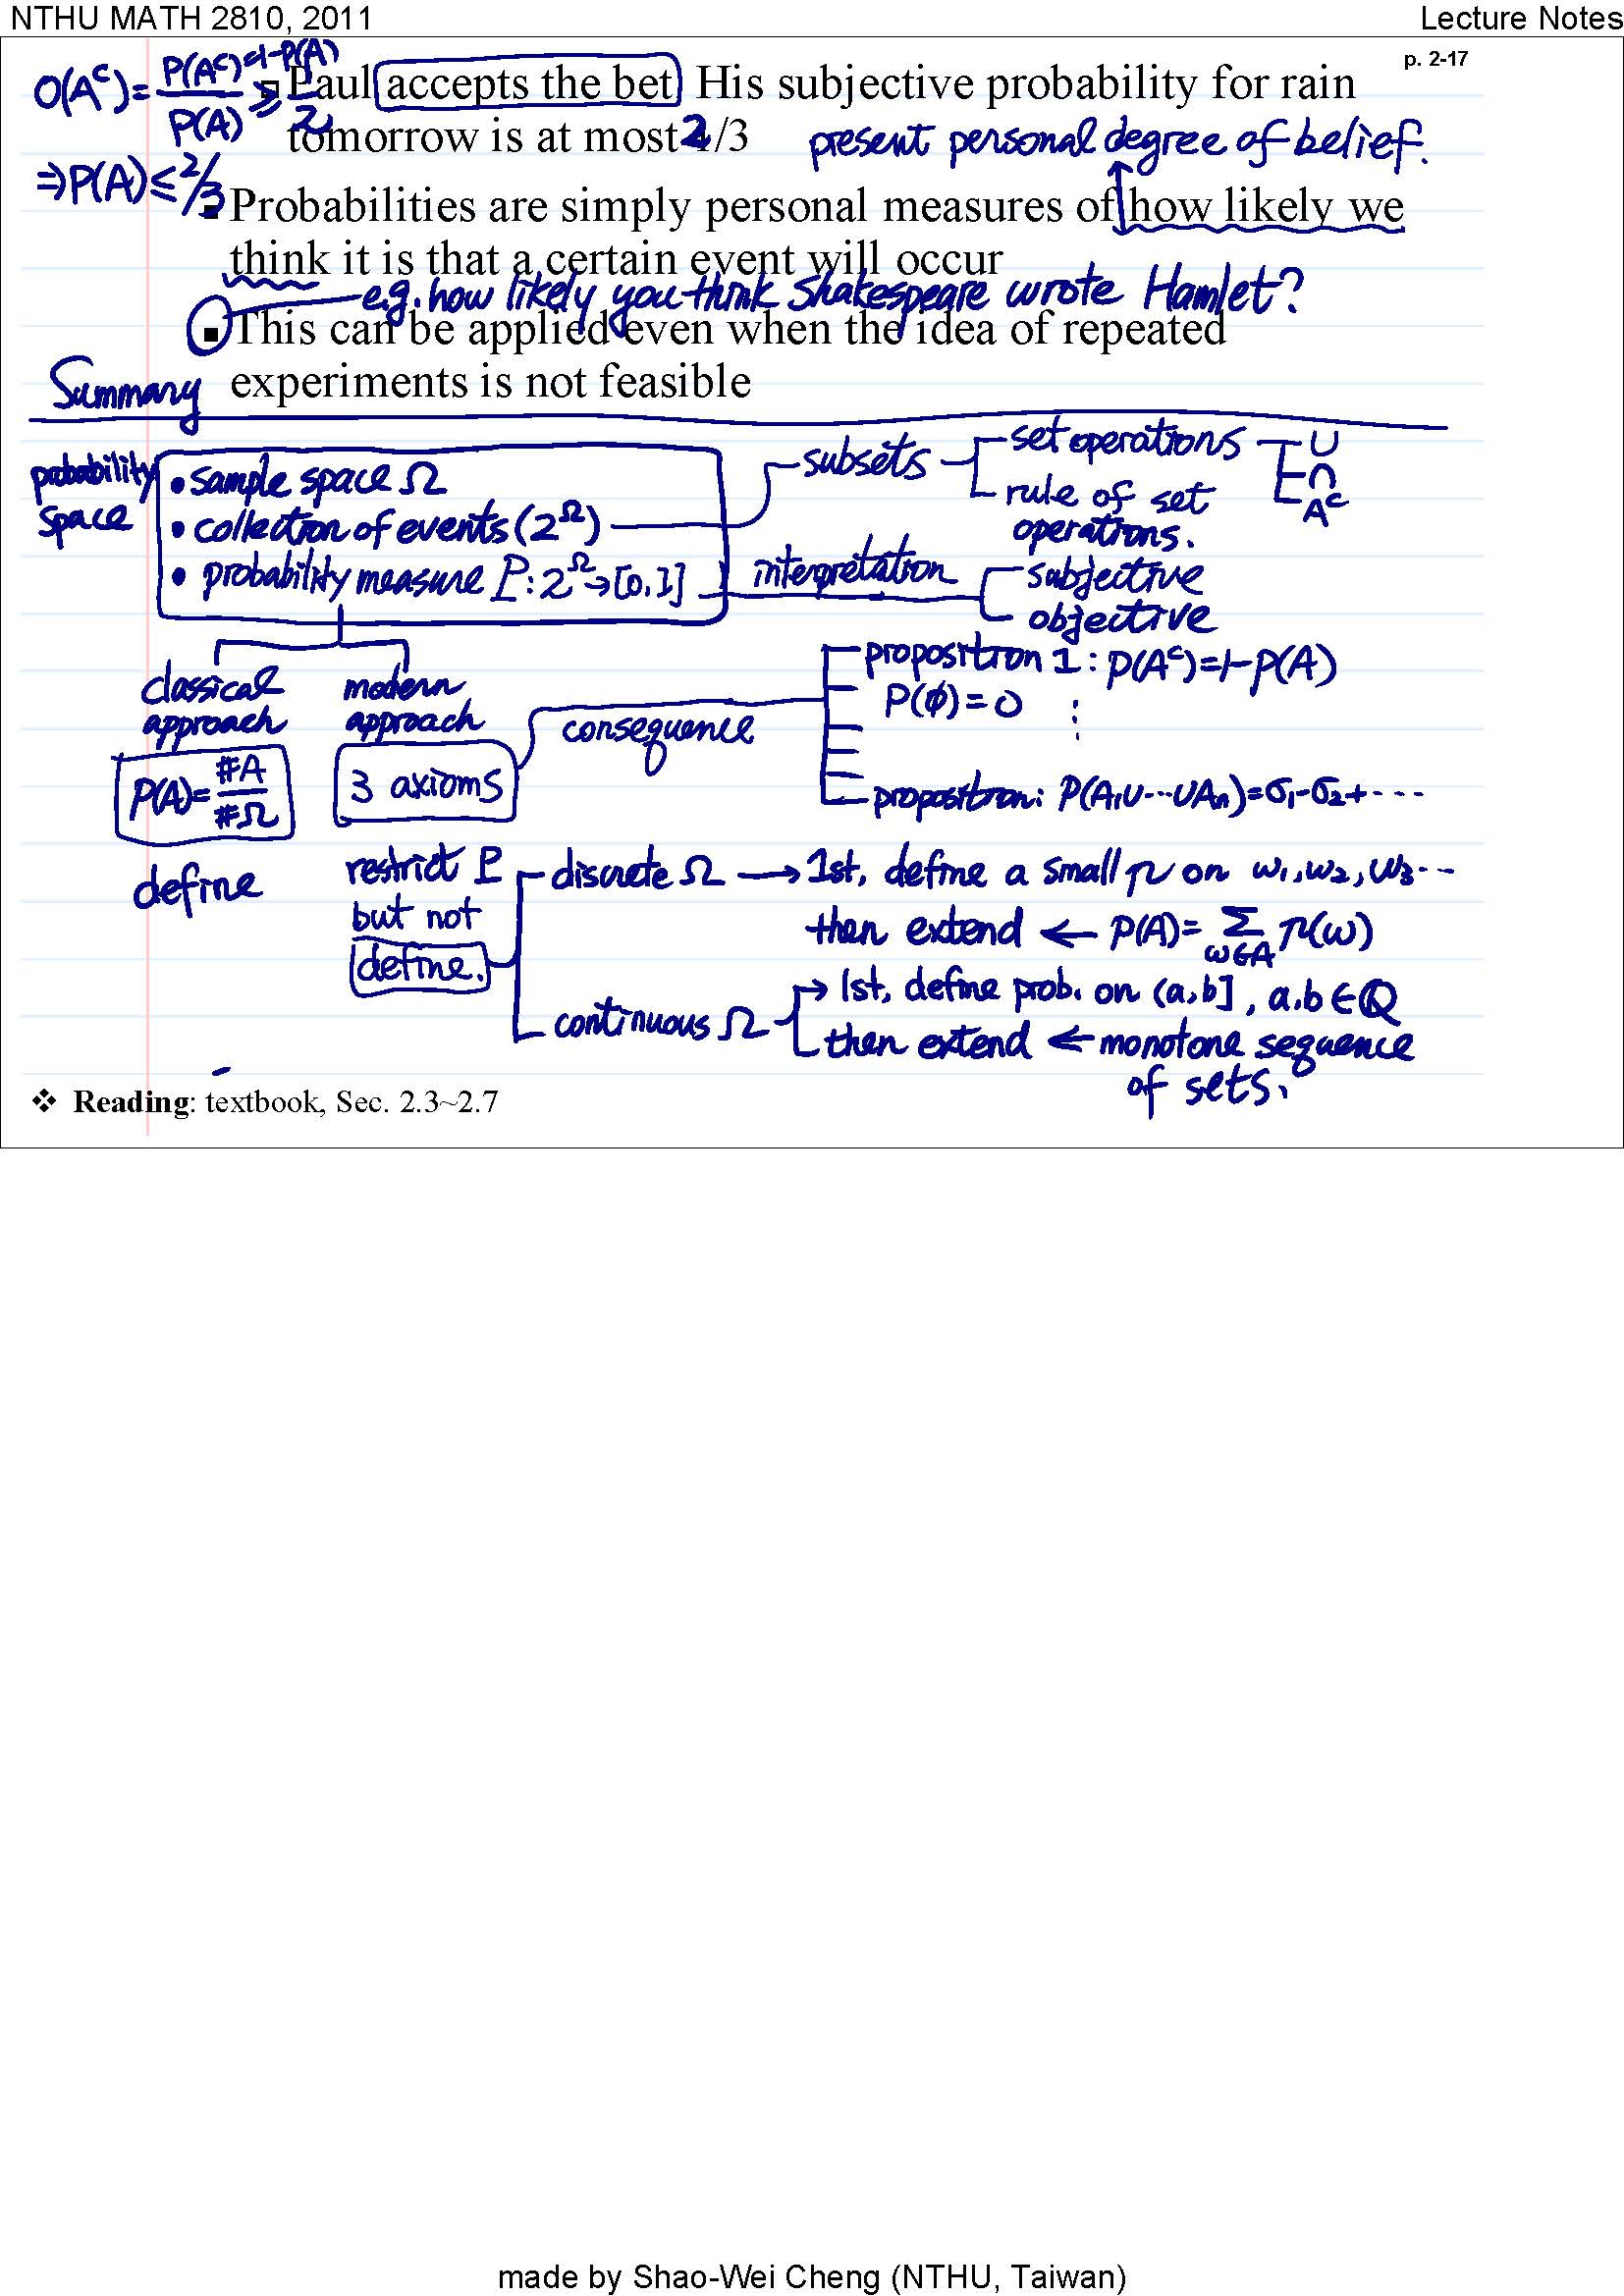 NTHU MATH 2810, 2011 Lecture Notes
p. 2-17
O(Aᶜ) = P(Aᶜ) =1-P(A) / P(A) ≥ 1/2
▪ Paul accepts the bet. His subjective probability for rain
tomorrow is at most 2/3
present personal degree of belief.
⇒ P(A) ≤ 2/3
▪ Probabilities are simply personal measures of how likely we
think it is that a certain event will occur
e.g. how likely you think Shakespeare wrote Hamlet?
▪ This can be applied even when the idea of repeated
experiments is not feasible
Summary
probability space
• sample space Ω
• collection of events (2^Ω)
• probability measure P: 2^Ω → [0,1]
subsets
set operations
∪
∩
Aᶜ
rule of set
operations.
interpretation
subjective
objective
classical
approach
P(A) = #A / #Ω
define
modern
approach
3 axioms
consequence
proposition 1 : P(Aᶜ) = 1-P(A)
P(∅) = 0 ⋮
proposition: P(A₁∪⋯∪Aₙ) = σ₁-σ₂+ ----
restrict P
but not
define.
discrete Ω → 1st, define a small p on ω₁, ω₂, ω₃ ...
then extend ← P(A) = Σ_{ω∈A} p(ω)
continuous Ω
→ 1st, define prob. on (a,b], a,b ∈ ℚ
then extend ← monotone sequence
of sets.
❖ Reading: textbook, Sec. 2.3~2.7
made by Shao-Wei Cheng (NTHU, Taiwan)